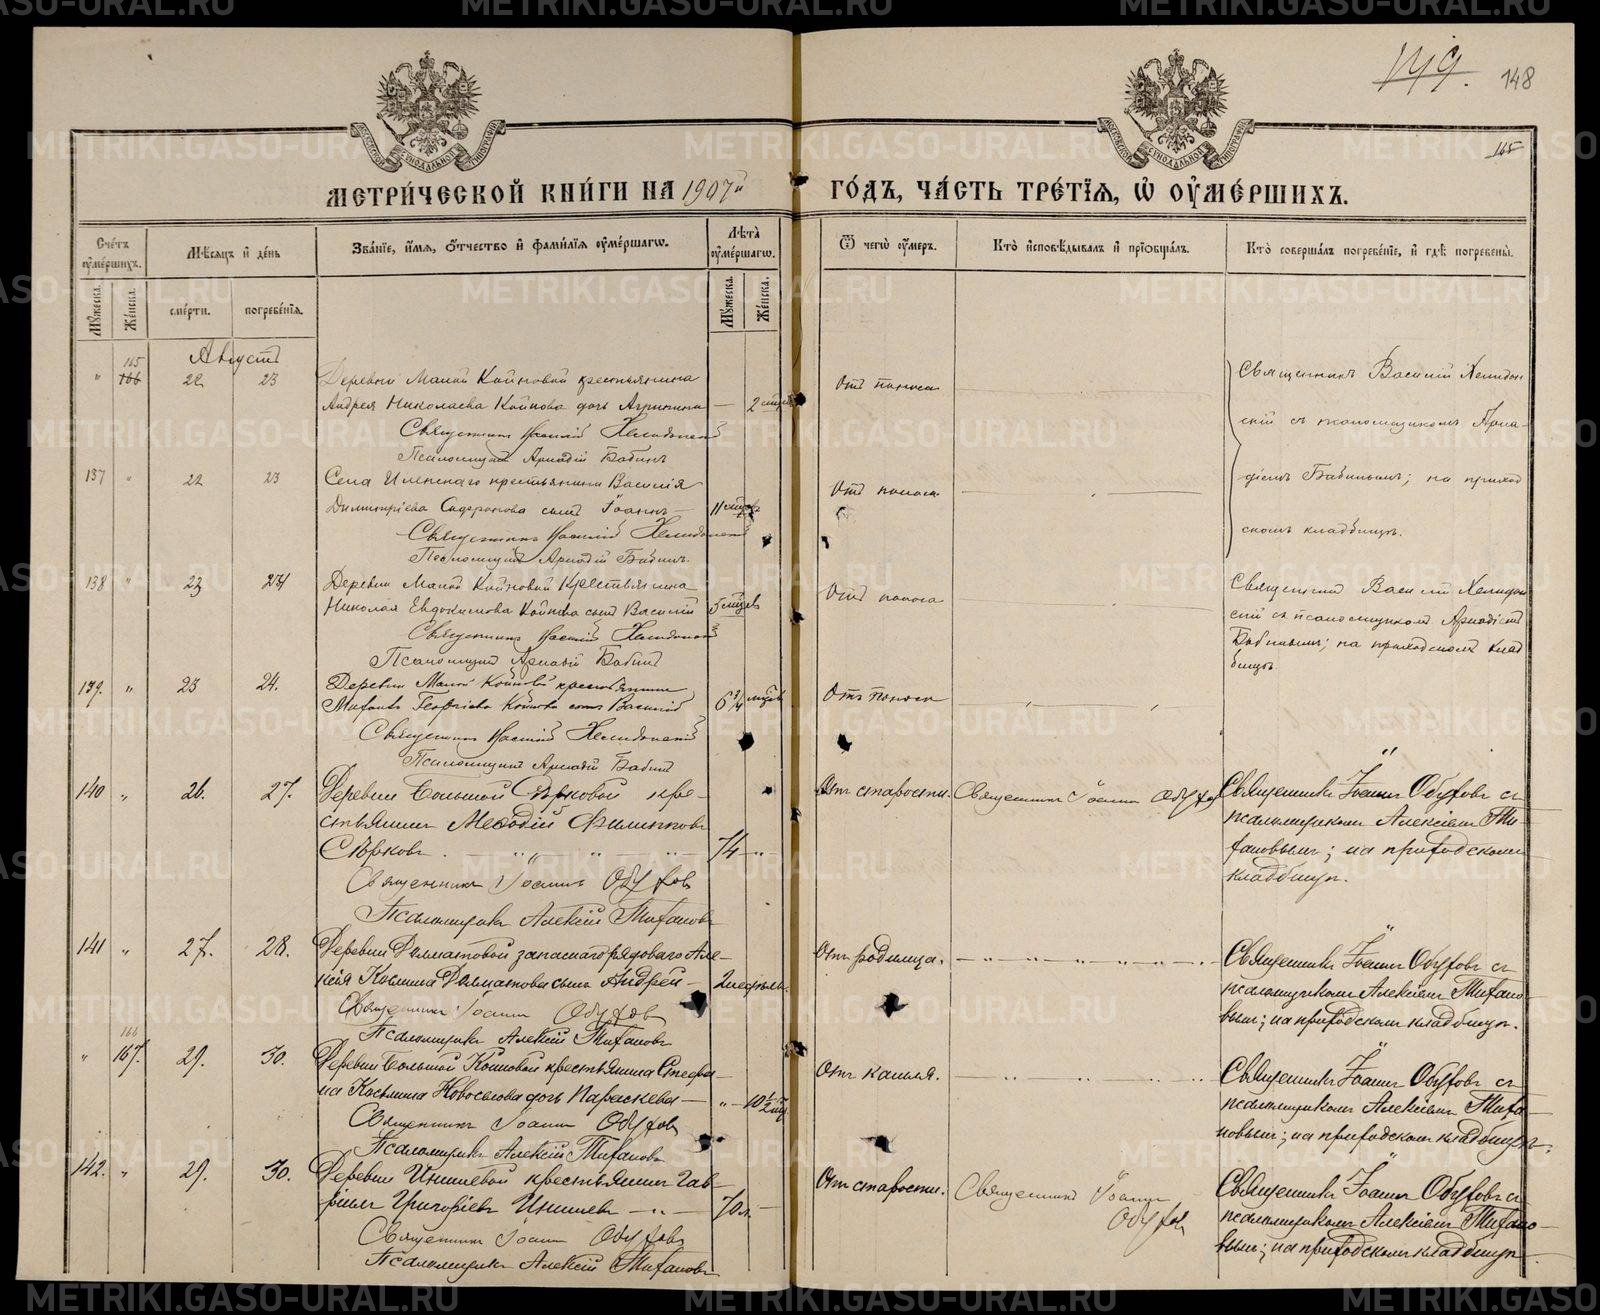 149.
148
165
МЕТРИ́ЧЕСКОЙ КНИ́ГИ НА 1907й
ГО́ДЪ, ЧА́СТЬ ТРЕ́ТІѦ, Ѡ҆ ОУ҆МЕ́РШИХЪ.
Сче́тъ оу҆ме́ршихъ.
Мꙋ́жеска.
Же́нска.
Мѣ́сяцъ и҆ де́нь
сме́рти.
погребе́нїѧ.
Зва́нїе, и҆́мѧ, ѻ҆́тчество и҆ фами́лїѧ оу҆ме́ршагѡ.
Лѣ́та оу҆ме́ршагѡ.
Мꙋ́жеска.
Же́нска.
Ѿ чегѡ̀ оу҆́меръ.
Кто̀ и҆сповѣ́дывалъ и҆ прїѡбща́лъ.
Кто̀ соверша́лъ погребе́нїе, и҆ гдѣ̀ погребены̀.
Августъ
" 165 166 22 23 Деревни Малой Койновой крестьянина
Андрея Николаева Койнова дочь Агрипина — 2 мѣсяц
Священникъ Василій Хелидонскій
Псаломщикъ Аркадій Бабинъ
Отъ поноса
Священникъ Василій Хелидон
скій съ псаломщикомъ Арка-
діемъ Бабинымъ; на приход
скомъ кладбищѣ.
137 " 22 23 Села Иленскаго крестьянина Василія
Димитріева Сафронова сынъ Іоаннъ — 11 мѣсяцевъ
Священникъ Василій Хелидонскій
Псаломщикъ Аркадій Бабинъ.
Отъ поноса
138 " 23 24 Деревни Малой Койновой Крестьянина
Николая Евдокимова Койнова сынъ Василій 5 мѣсяцевъ
Священникъ Василій Хелидонскій
Псаломщикъ Аркадій Бабинъ
Отъ поноса
Священникъ Василій Хелидон
скій съ псаломщикомъ Аркадіемъ
Бабинымъ; на приходскомъ клад
бищѣ
139. " 23 24. Деревни Малой Койновой крестьянина
Георгіева Койнова сынъ Василій 6 3/4 мѣсяц
Священникъ Василій Хелидонскій
Псаломщикъ Аркадій Бабинъ
Отъ поноса
140 " 26. 27. Деревни Большой Сѣрковой кре-
стьянинъ Меѳодій Филипповъ
Сѣрковъ. — " " " — 74 "
Священникъ Іоаннъ Обуховъ
Псаломщикъ Алексій Тихановъ
Отъ старости.
Священникъ Іоаннъ Обухов
Священникъ Іоаннъ Обуховъ съ
псаломщикомъ Алексіемъ Ти-
хановымъ; на приходскомъ
кладбищѣ.
141 " 27. 28. Деревни Филматовой запаснаго рядового Але-
ксія Космина Филматова сынъ Андрей — 2 недѣль.
Священникъ Іоаннъ Обуховъ
Псаломщикъ Алексій Тихановъ
Отъ родимца.
Священникъ Іоаннъ Обуховъ съ
псаломщикомъ Алексіемъ Тихано-
вымъ; на приходскомъ кладбищѣ.
" 166 167. 29. 30. Деревни Большой Койновой крестьянина Стефа-
на Космина Новоселова дочь Параскева — " — 10 1/2 м.
Священникъ Іоаннъ Обуховъ
Псаломщикъ Алексій Тихановъ
Отъ кашля.
Священникъ Іоаннъ Обуховъ съ
псаломщикомъ Алексіемъ Тиха-
новымъ; на приходскомъ кладбищѣ.
142. " 29. 30. Деревни Инишевой крестьянинъ Гав-
ріилъ Григорьевъ Инишевъ — " — 70 л. —
Священникъ Іоаннъ Обуховъ
Псаломщикъ Алексій Тихановъ
Отъ старости.
Священникъ Іоаннъ
Обуховъ
Священникъ Іоаннъ Обуховъ съ
псаломщикомъ Алексіемъ Тихано-
вымъ; на приходскомъ кладбищѣ.
METRIKI.GASO-URAL.RU